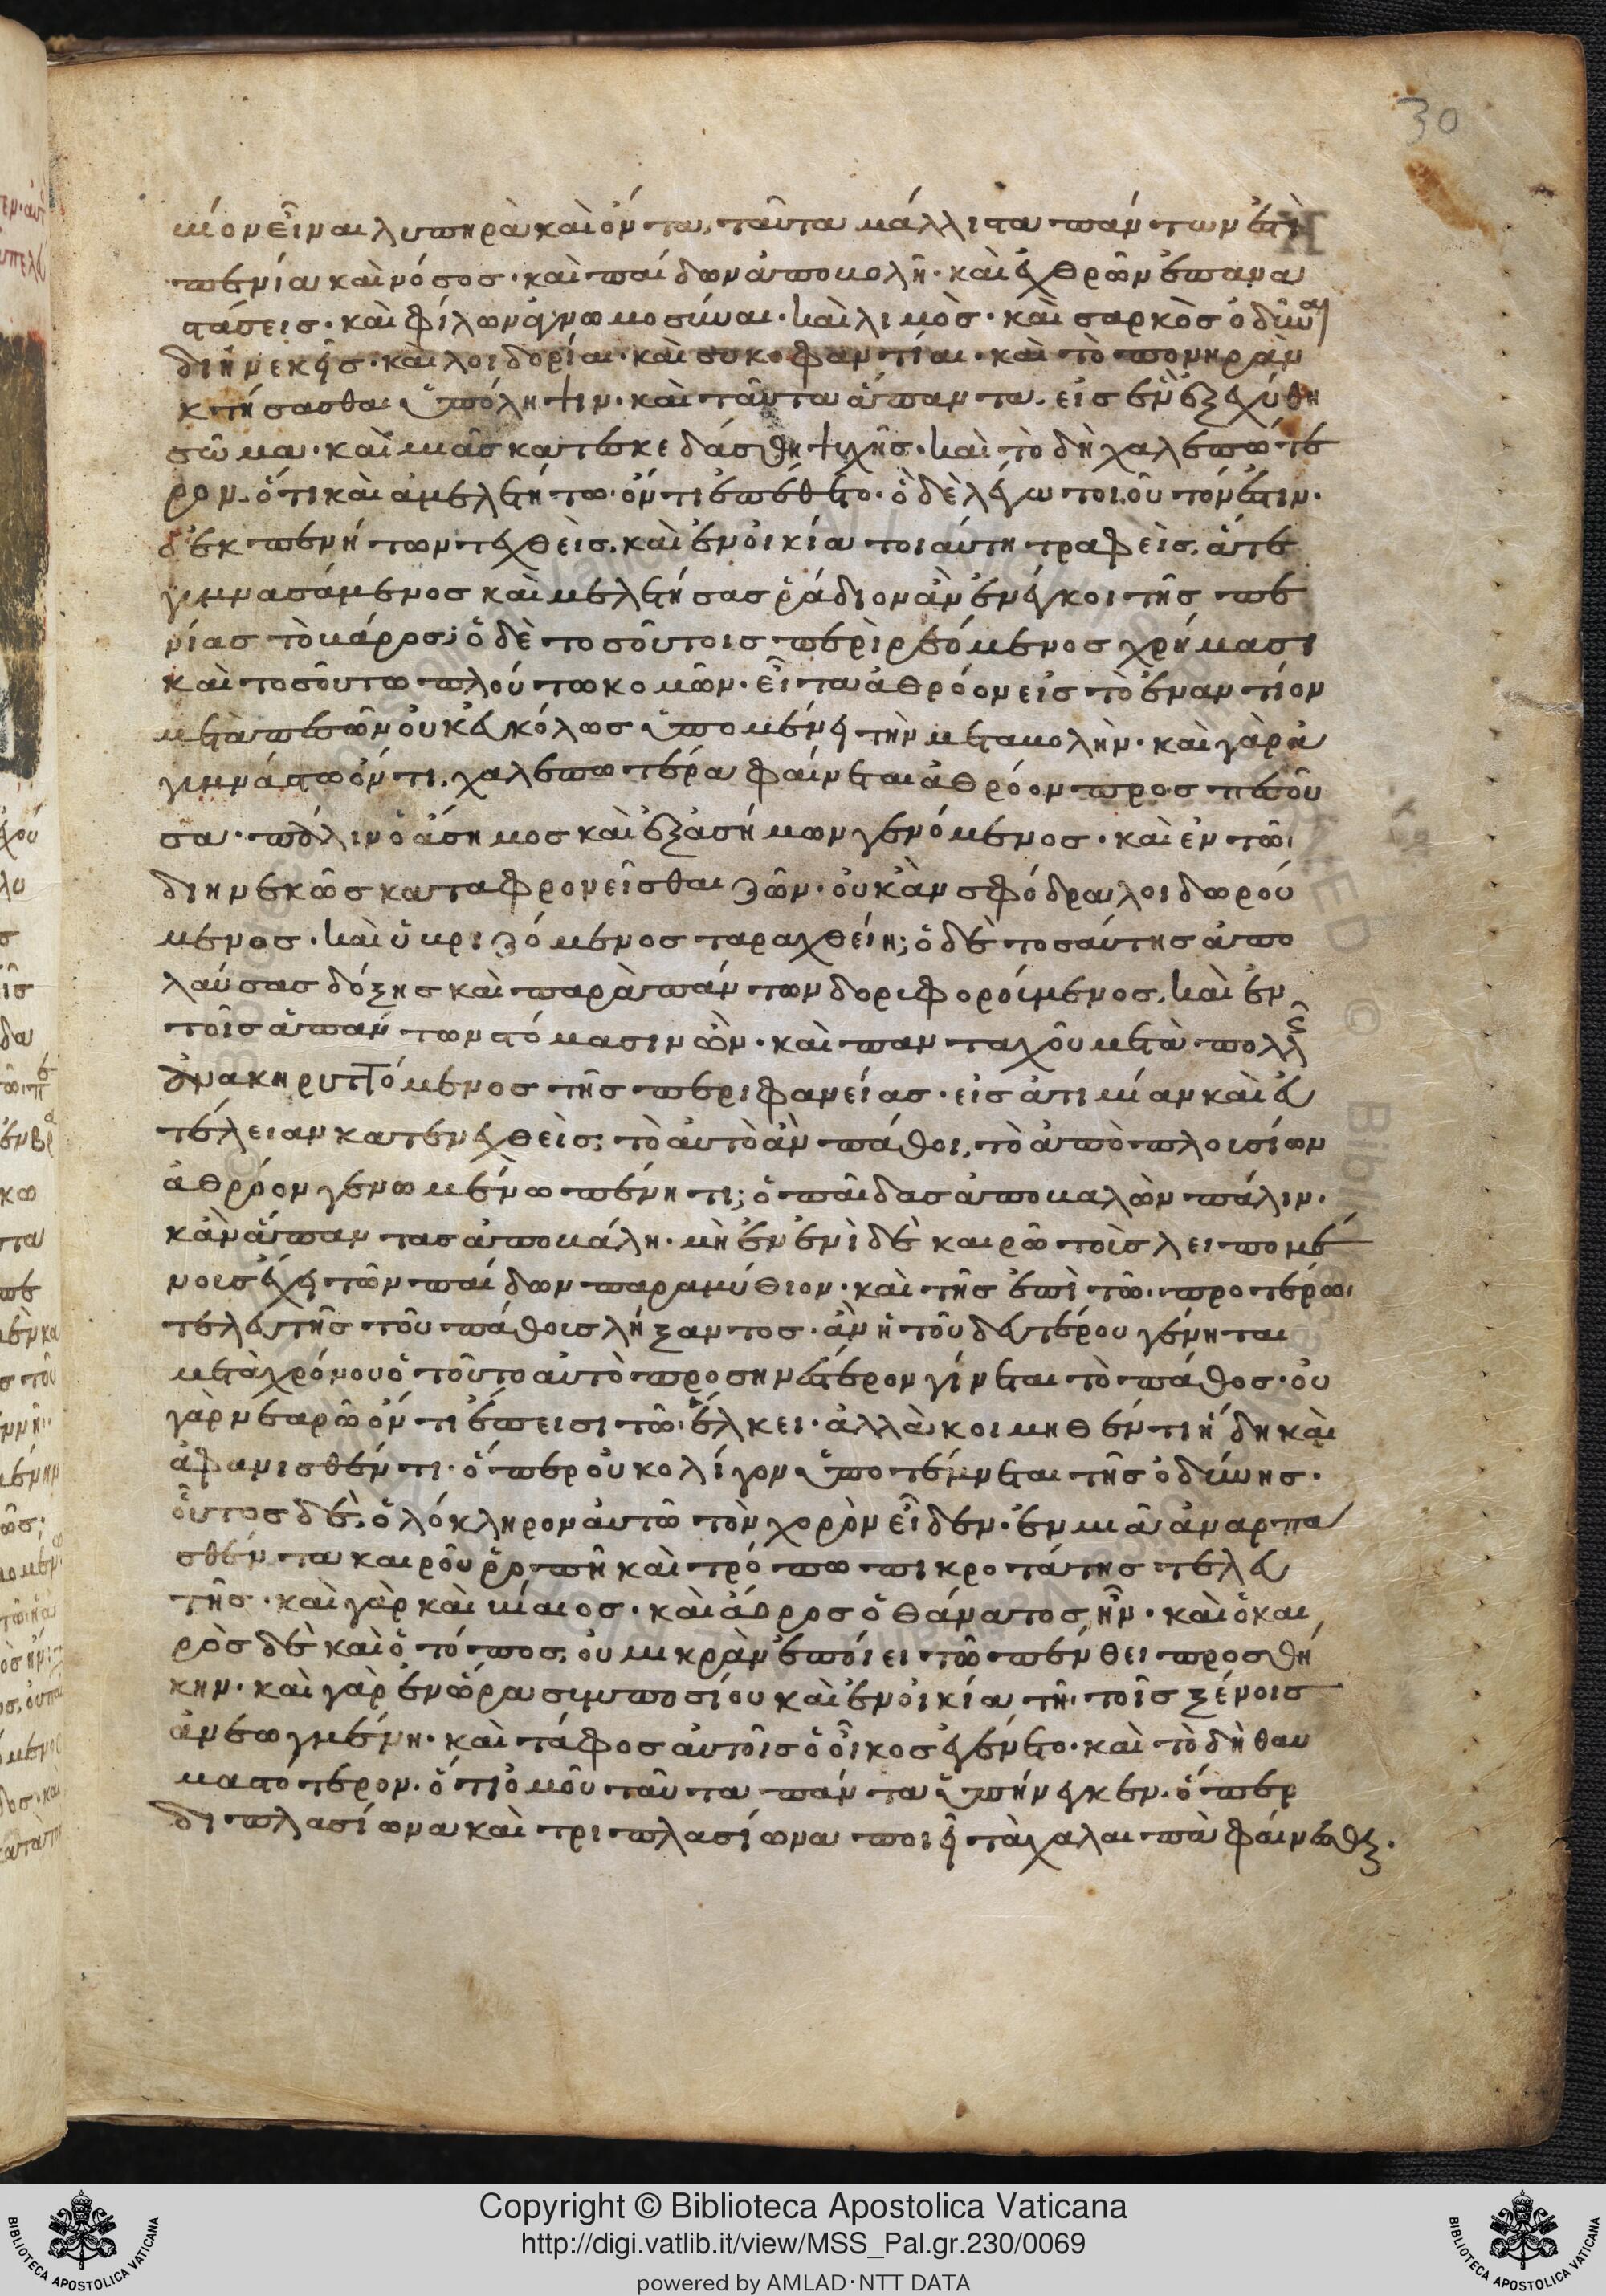 βίον εἶναι λυπηρὰ καὶ ὄντα, ταῦτα μάλλιστα πάντων ἐστὶ
πενία καὶ νόσος· καὶ παίδων ἀποβολῆ· καὶ ἐχθρῶν ἐπανα
στάσεις· καὶ φίλων ἀγνωμοσύναι· καὶ λιμὸς· καὶ σαρκὸς ὀδύναι
διηνεκεῖς· καὶ λοιδορίαι· καὶ συκοφαντίαι· καὶ τὸ πονηρὰν
κτήσασθαι ὑπόληψιν· καὶ ταῦτα ἅπαντα, εἰς ἓν ἐξεχύθη
σῶμα· καὶ μιᾶς κατεσκεδάσθη ψυχῆς· καὶ τὸ δὴ χαλεπώτε
ρον. ὅτι καὶ ἀμελετήτω ὄντι ἐπέθετο· ὃ δὲ λέγω τοιοῦτόν ἐστιν·
ὁ ἐκ πενήτων τεχθεὶς, καὶ ἐν οἰκία τοιαύτη τραφεὶς, ἅτε
γυμνασάμενος καὶ μελετήσας ῥάδιον ἂν ἐνέγκοι τῆς πε
νίας τὸ βάρος; ὁ δὲ τοσούτοις περὶρρεόμενος χρήμασι
καὶ τοσούτω πλούτω κομῶν· εἶτα ἀθρόον εἰς τὸ ἐναντίον
μεταπεσῶν οὐκ εὐκόλως ὑπομένει τὴν μεταβολὴν· καὶ γὰρ ἀ
γυμνάστω ὄντι, χαλεπωτέρα φαίνεται ἀθρόον προσπεσοῦ
σα· πάλιν ὁ ἄσημος καὶ ἐξ ἀσήμων γενόμενος· καὶ ἐν τῶ
διηνεκῶς καταφρονεῖσθαι ζῶν· οὐκ ἂν σφόδρα λοιδωρού
μενος· καὶ ὑβριζόμενος ταραχθείη; ὁ δὲ τοσαύτης ἀπο
λαύσας δόξης καὶ παρὰ πάντων δορυφορούμενος, καὶ ἐν
τοῖς ἁπάντων στόμασιν ὢν· καὶ πανταχοῦ μετὰ πολλῆς
ἀνακηρυττόμενος τῆς περιφανείας· εἰς ἀτιμίαν καὶ εὐ
τέλειαν κατενεχθεὶς; τὸ αὐτὸ ἂν πάθοι, τὸ ἀπὸ πλουσίων
ἀθρόον γενωμένω πένητι; ὁ παῖδας ἀποβαλὼν πάλιν·
κἂν ἅπαντας ἀποβάλη· μὴ ἐν ἑνὶ δὲ καιρῶ τοῖς λειπομέ
νοις ἔχει τῶν παίδων παραμύθιον· καὶ τῆς ἐπὶ τῶ προτέρω
τελευτῆς τοῦ πάθους λήξαντος· ἂν ἡ τοῦ δευτέρου γένηται
μετὰ χρόνου ὁ τοῦτο αὐτὸ προσηνέστερον γίνεται τὸ πάθος· οὐ
γὰρ νεαρῶ ὄντι ἔπεισι τῶ ἕλκει· ἀλλὰ κοιμηθέντι ἤδη καὶ
ἀφανισθέντι· ὅπερ οὐκ ολίγον ὑποτέμνεται τῆς ὀδύνης·
οὗτος δὲ, ὁλόκληρον αὐτῶ τὸν χορὸν εἶδεν· ἐν μιᾶ ἀναρπα
σθέντα καιροῦ ῥοπῆ καὶ τρόπω πικροτάτης τελευ
τῆς· καὶ γὰρ καὶ βίαιος· καὶ ἄωρος ὁ θάνατος ἦν· καὶ ὁ και
ρὸς δὲ καὶ ὁ τόπος, οὐ μικρὰν ἐποίει τῶ πένθει προσθή
κην· καὶ γὰρ ἐν ὥρα συμποσίου καὶ ἐν οἰκία τῆ τοῖς ξένοις
ἀνεωγμένη· καὶ τάφος αὐτοῖς ὁ οἶκος ἐγένετο· καὶ τὸ δὴ θαυ
μαστότερον. ὅτι ὁμοῦ ταῦτα πάντα ὑπήνεγκεν. ὅπερ
διπλασίωνα καὶ τριπλασίωνα ποιεῖ τὰ χαλαιπὰ φαίνεσθαι.
30
Copyright © Biblioteca Apostolica Vaticana
http://digi.vatlib.it/view/MSS_Pal.gr.230/0069
powered by AMLAD·NTT DATA
BIBLIOTECA APOSTOLICA VATICANA
BIBLIOTECA APOSTOLICA VATICANA